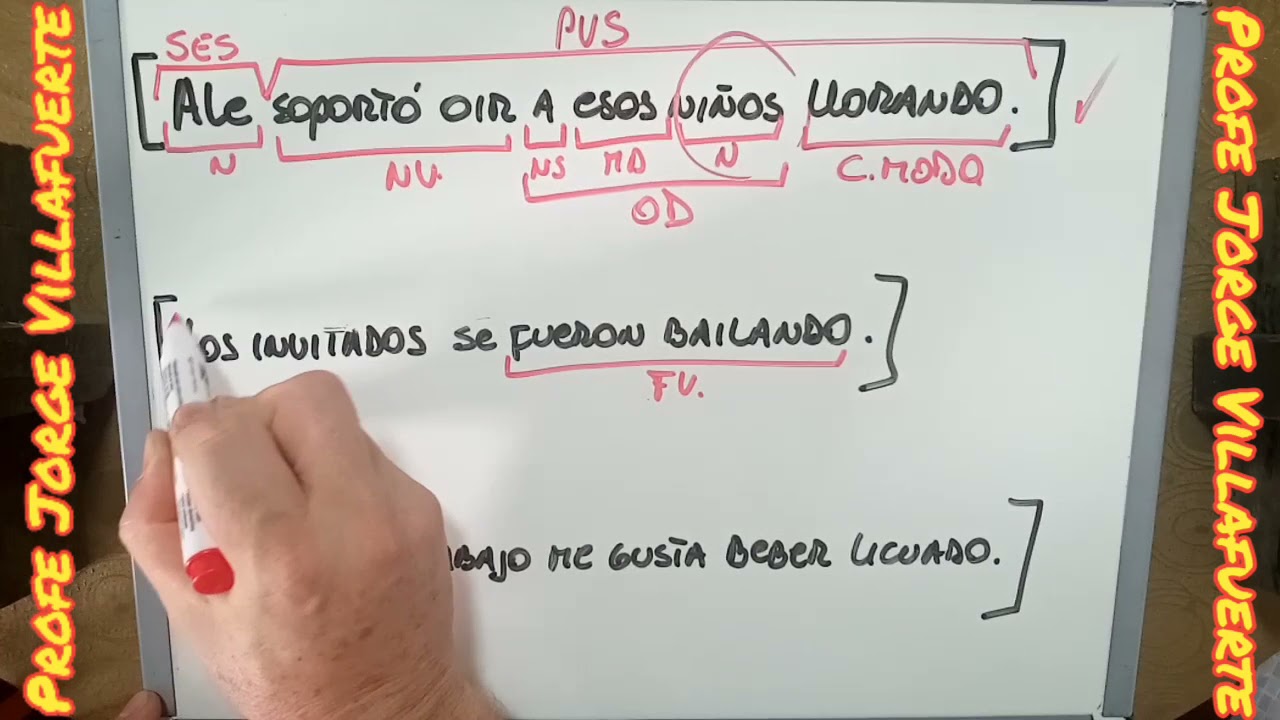 PROFE JORGE VILLAFUERTE
SES PVS
[Ale soportó oir A esos niños llorando.] ✓
N NV. NS MD N C.MODO
OD
[Los invitados se fueron bailando.]
FV.
me gusta beber licuado.]
PROFE JORGE VILLAFUERTE